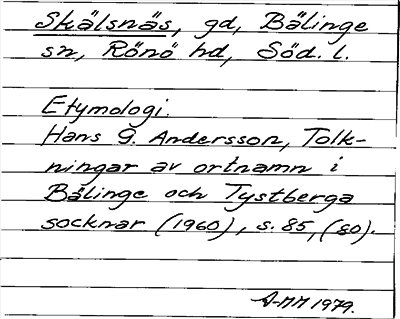 Skälsnäs, gd, Bälinge
sn, Rönö hd, Söd. l.
Etymologi.
Hans G. Andersson, Tolk-
ningar av ortnamn i
Bälinge och Tystberga
socknar (1960), s. 85, (80).
A-MM 1979.